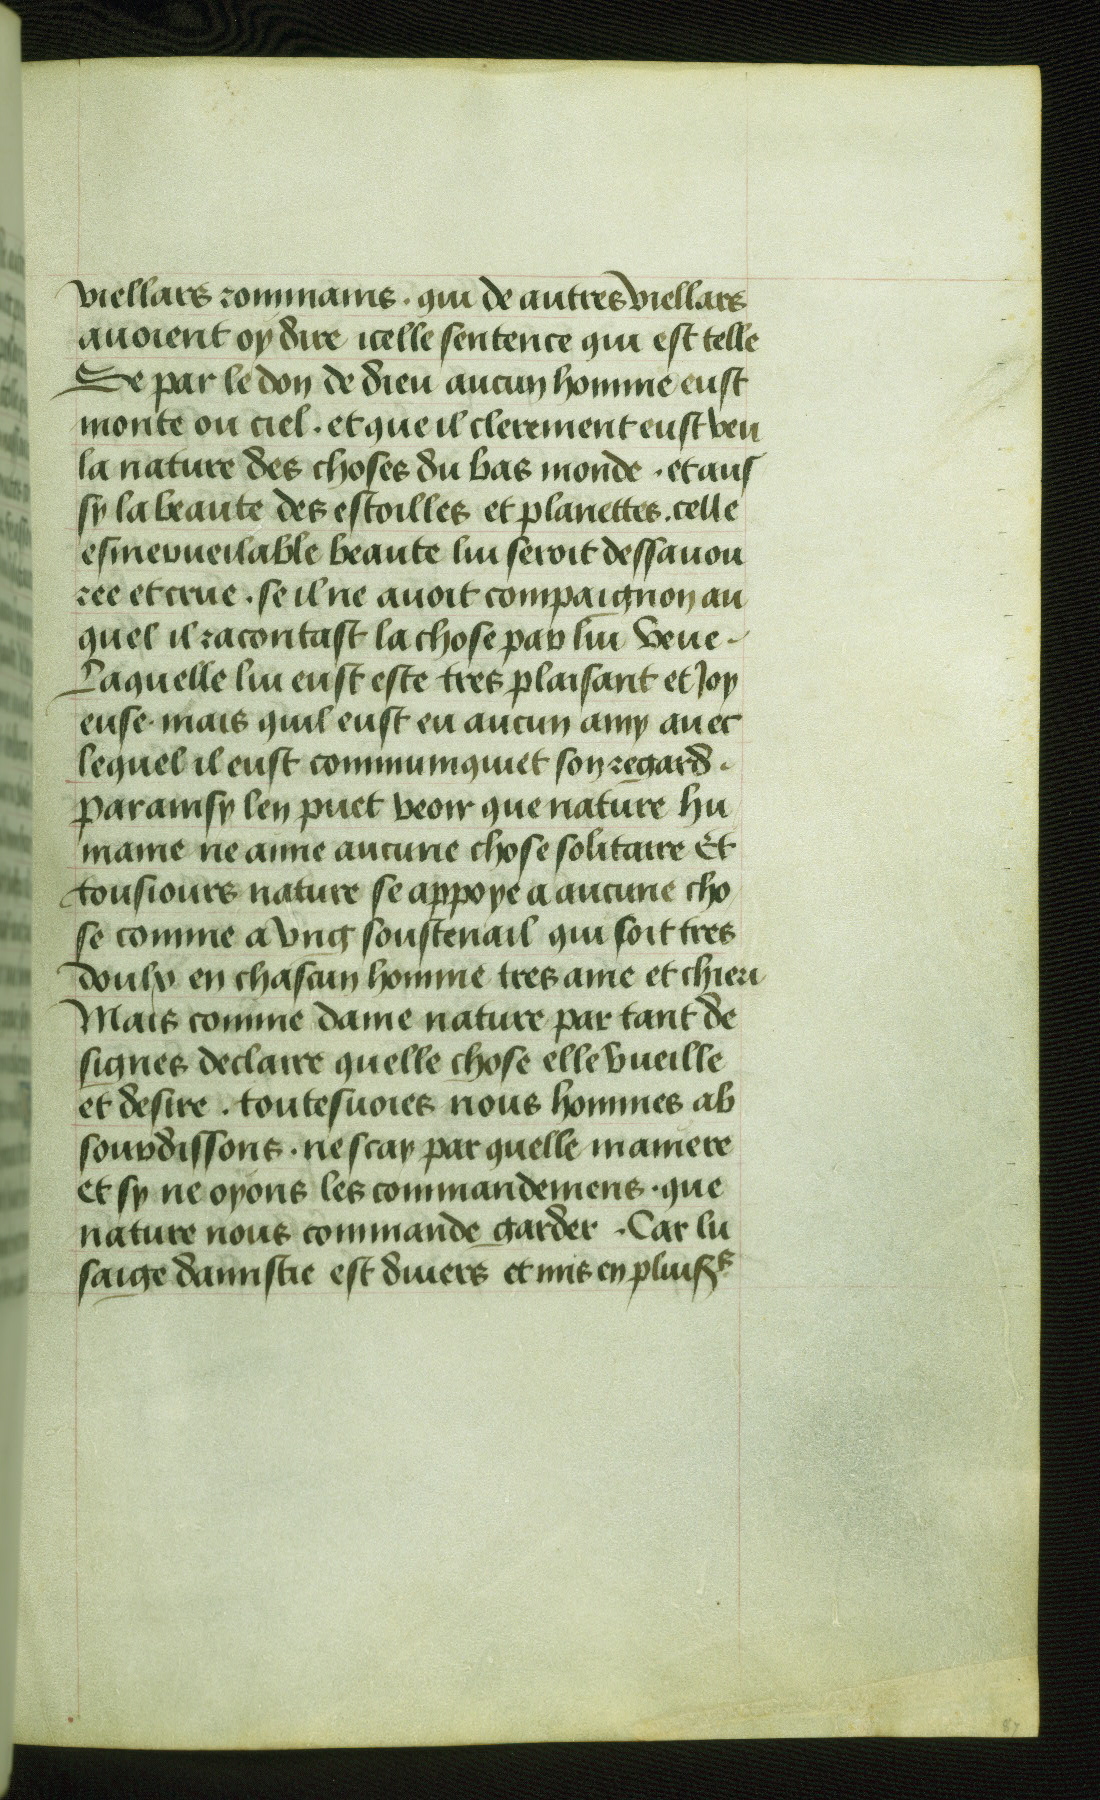 viellars rommains · qui de autres viellars
auoient oy dire icelle sentence qui est telle
Se par le don de dieu aucun homme eust
monte ou ciel · et que il clerement eust veu
la nature des choses du bas monde · et aus
sy la beaute des estoilles et planettes · celle
esmerueilable beaute lui seroit dessauou
ree et crue · se il ne auoit compaignon au
quel il racontast la chose par lui veue ·
Laquelle lui eust este tres plaisant et Joy
euse · mais quil eust eu aucun amy auec
lequel il eust communiquiet son regard ·
par ainsy len puet veoir que nature hu
maine ne aime aucune chose solitaire Et
tousiours nature se appoye a aucune cho
se comme a vng soustenail qui soit tres
doulx en chascun homme tres ame et chieri
Mais comme dame nature par tant de
signes declaire quelle chose elle vueille
et desire · toutesuoies nous hommes ab
sourdissons · ne scay par quelle maniere
et sy ne oyons les commandemens · que
nature nous commande garder · Car lu
saige damistie est diuers et mis en pluisrs
87